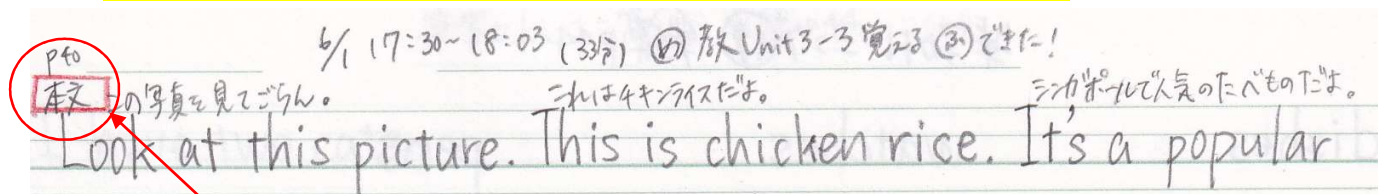 6/1 17:30~18:03 (33分) め 教Unit3-3覚える ふ できた!
p40
本文 この写真を見てごらん。 これはチキンライスだよ。 シンガポールで人気のたべものだよ。
Look at this picture. This is chicken rice. It's a popular